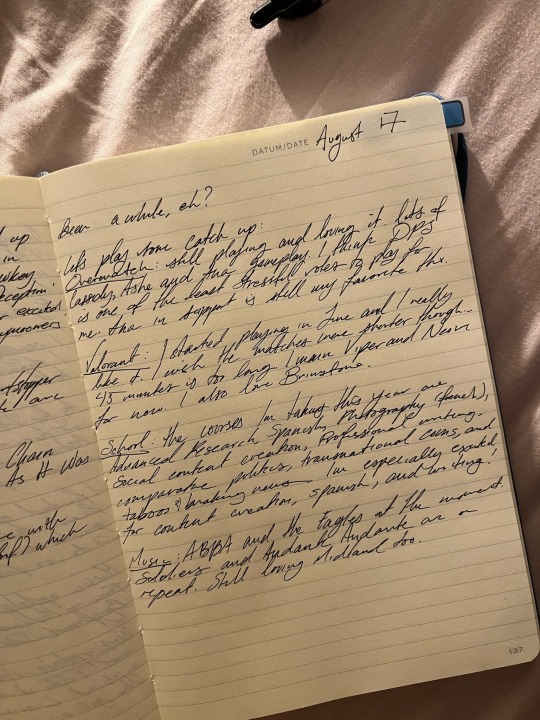 DATUM/DATE August 17
Been a while, eh?
Lets play some catch up:
Overwatch: still playing and loving it. lots of
Cassidy, Ashe and their gameplay. I think DPS
is one of the least stressful roles to play for
me. Ana in support is still my favorite tho.
Valorant: I started playing in June and I really
like it. I wish the matches were shorter though...
45 minutes is too long. I main Viper and Neon
for now. I also love Brimstone.
School: the courses I'm taking this year are
Advanced Research Spanish, Photography (french),
Social content creation, Professional writing,
comparative politics, transnational cuns, and
taboos & breaking news. I'm especially excited
for content creation, spanish, and writing!
Music: ABBA and the Eagles at the moment.
Soldiers and Andante Andante are on
repeat. Still loving Midland too.
137
up
in
exception.
excited
Chain
As It Was
with
which